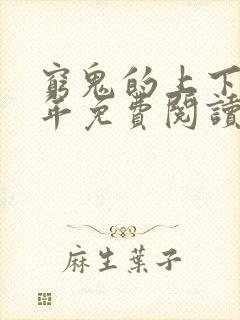 窮鬼的上下
年免費閱讀
麻生葉子